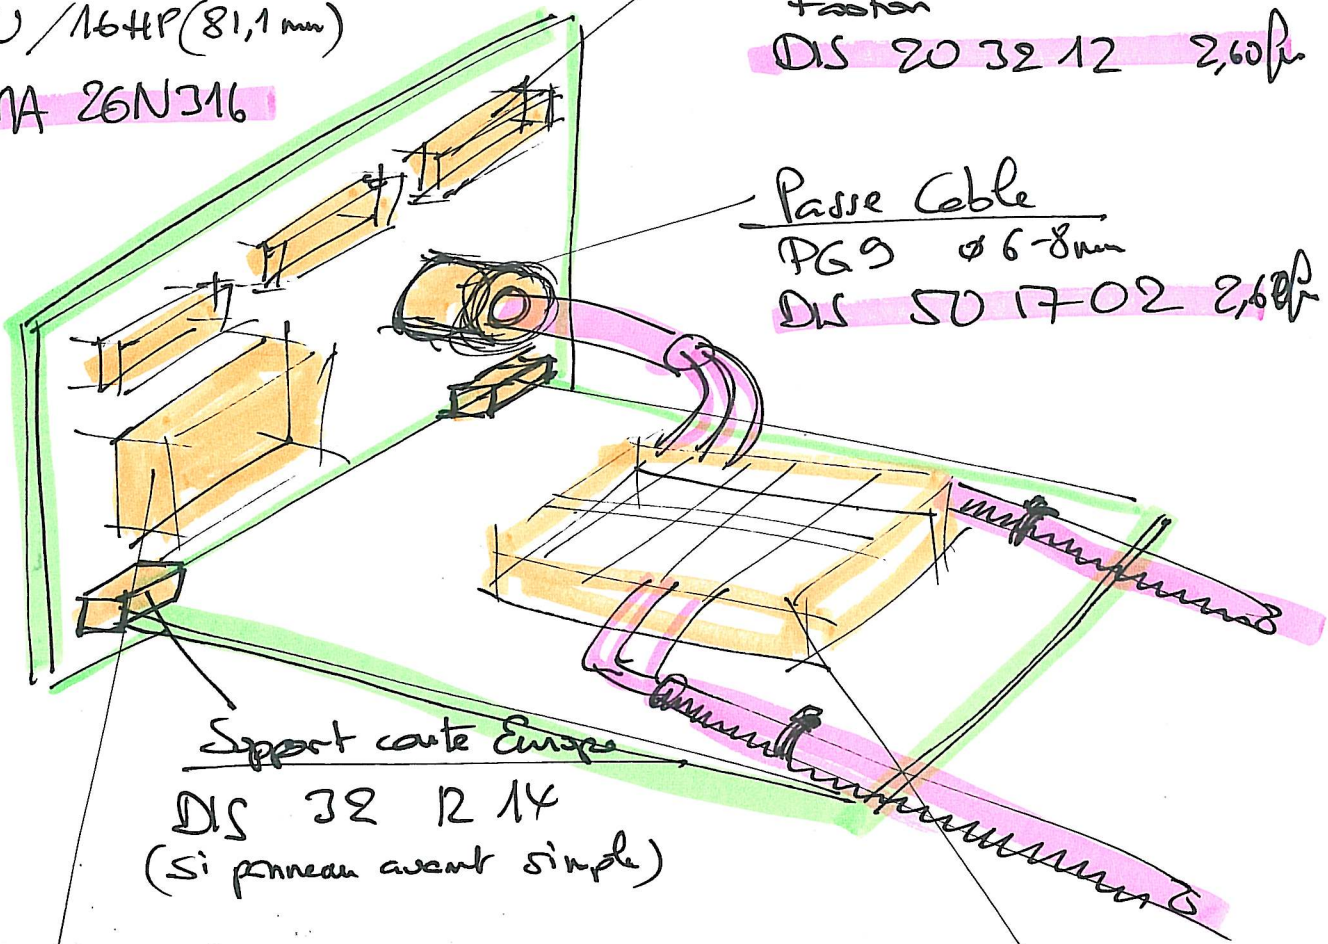 U / 16HP (81,1 mm)
MA 26N316
Faston
DIS 20 32 12 2,60 fr
Passe Cable
PG9 ø 6-8mm
DIS 50 17 02
Support carte Europe
DIS 32 12 14
(si panneau avant simple)